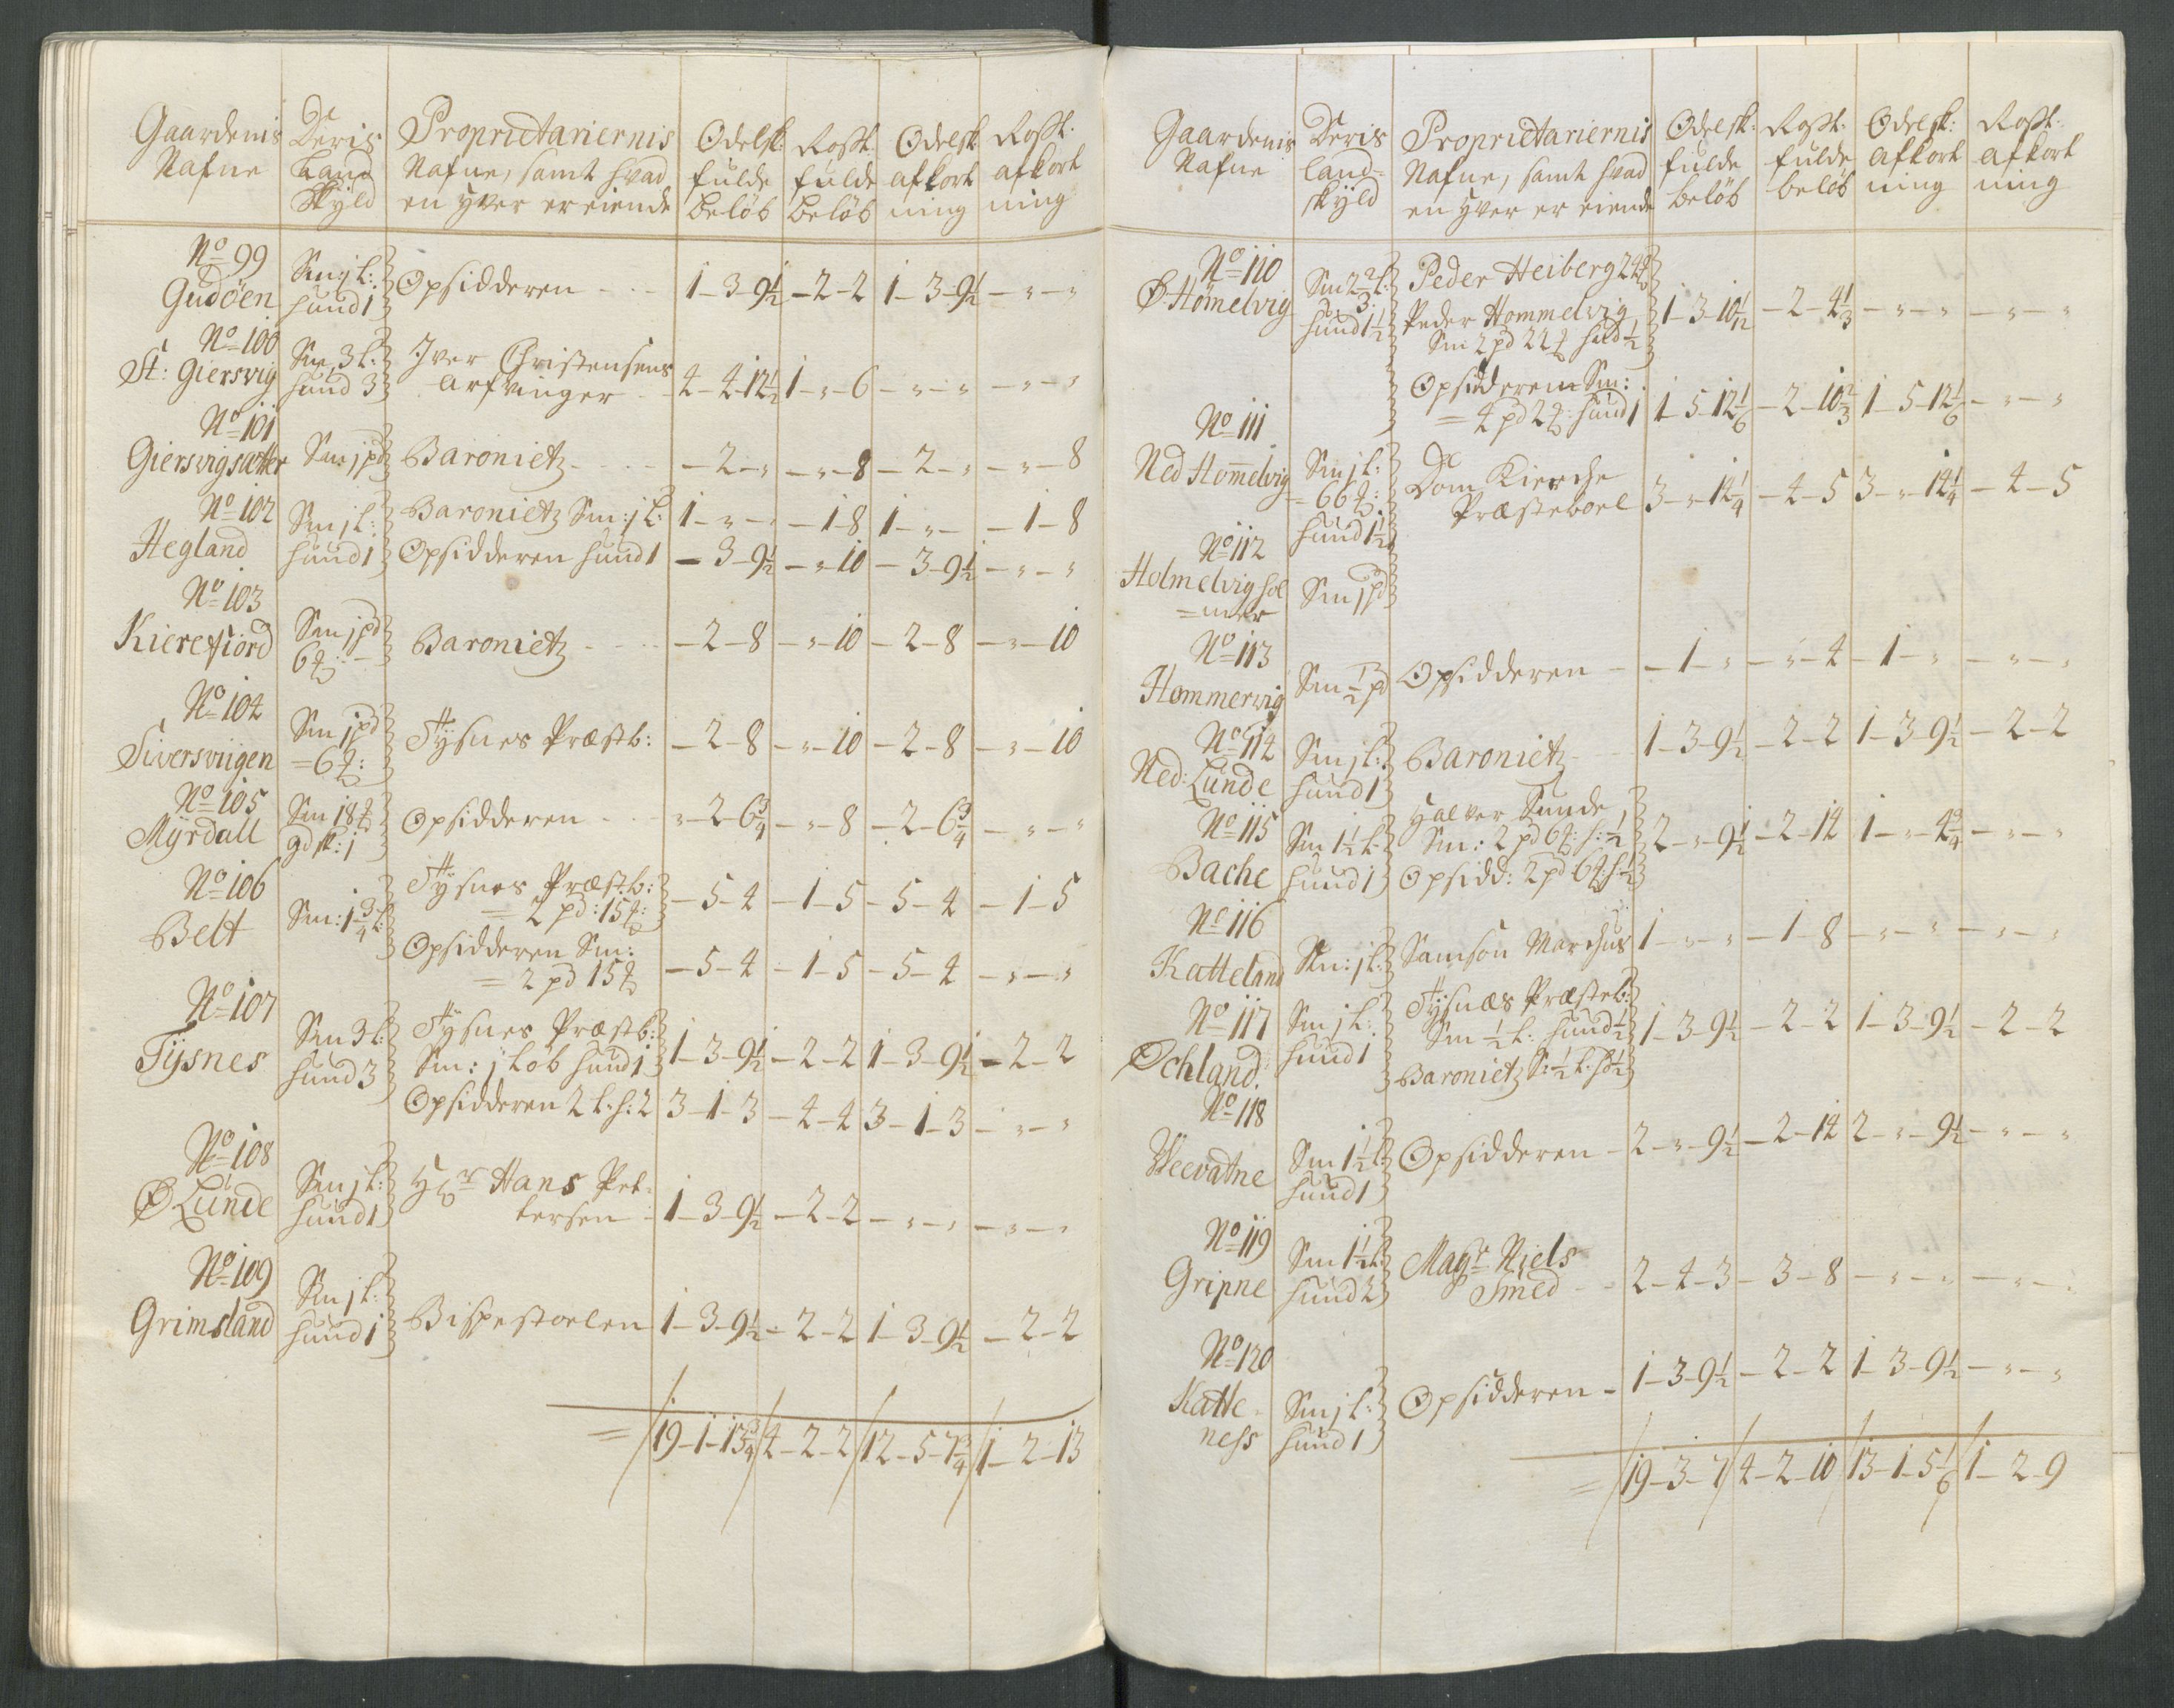 Gaardenis Nafne | Deris Land Skyld | Proprietariernis Nafne, samt hvad en hver er eiende | Odelsk: fulde beløb | Rostt: fulde beløb | Odelsk afkort ning | Rostt: afkort ning
No 99 Gudöen | Sm: j l: hund 1 | Opsidderen | 1-3-9½ | -2-2 | 1-3-9½ | -"-"
No 100 St: Giersvig | Sm 3 l: hund 3 | Iver Christensens arfvinger | 4-4-12½ | 1-"-6 | -"-" | -"-"
No 101 Giersvigsætter | Sm: j pd | Baronietz | -2-" | -"-8 | -2-" | -"-8
No 102 Hegland | Sm j l: hund 1 | Baronietz Sm: j l: | 1-"-" | -1-8 | 1-"- | -1-8
Opsidderen hund 1 | -3-9½ | -"-10 | -3-9½ | -"-"
No 103 Kierefiord | Sm j pd 6 ℔: | Baronietz | -2-8 | -"-10 | -2-8 | -"-10
No 104 Siversviigen | Sm j pd =6 ℔: | Tysnes Præstb: | -2-8 | -"-10 | -2-8 | -"-10
No 105 Myrdall | Sm 18 ℔ gd sk: j | Opsidderen | "-2-6¾ | -"-8 | -2-6¾ | -"-"
No 106 Belt | Sm: 1¾ l: | Tysnes Præstb: = 2 pd: 15 ℔: | -5-4 | -1-5 | -5-4 | -1-5
Opsidderen Sm: = 2 pd 15 ℔ | -5-4 | -1-5 | -5-4 | -"-"
No 107 Tysnes | Sm 3 l: hund 3 | Tysnes Præstb: Sm: j Løb hund 1 | 1-3-9½ | -2-2 | 1-3-9½ | -2-2
Opsidderen 2 l: h: 2 | 3-1-3 | -4-4 | 3-1-3 | -"-"
No 108 Ø Lunde | Sm j l: hund 1 | Hr Hans Pettersen | 1-3-9½ | -2-2 | -"-" | -"-"
No 109 Grimsland | Sm j l: hund 1 | Bispestoelen | 1-3-9½ | -2-2 | 1-3-9½ | -2-2
= 19-1-13¾ | 4-2-2 | 12-5-7¾ | 1-2-13
Gaardenis Nafne | Deris land= skyld | Proprietariernis Nafne, samt hvad en hver er eiende | Odelsk: fulde beløb | Rostt: fulde beløb | Odelsk: afkort ning | Rostt: afkort ning
No 110 Ø: Homelvig | Sm 2⅔ l: hund 1½ | Peder Heiberg 24 ℔ Peder Hommelvig Sm 2 pd 22 ℔ hd ½ | 1-3-10 1/12 | -2-4⅓ | -"-" | -"-"
Opsidderen Sm: = 4 pd 2 ℔: hund 1 | 1-5-12⅙ | -2-10⅔ | 1-5-12⅙ | -"-"
No 111 Ned Homelvig | Sm j l: =66 ℔: hund 1½ | Dom Kierche Præsteboel | 3-"-14¼ | -4-5 | 3-"-14¼ | -4-5
No 112 Holmelvig hol =mer | Sm j pd
No 113 Hommervig | Sm ½ pd | Opsidderen | -1-" | -"-4 | -1-" | -"-"
No 114 Ned: Lunde | Sm j l: hund 1 | Baronietz | 1-3-9½ | -2-2 | 1-3-9½ | -2-2
No 115 Bache | Sm 1½ l: hund 1 | Halver Sunde Sm: 2 pd 6 ℔: h: ½ Opsidd: 2 pd 6 ℔: h ½ | 2-"-9½ | -2-14 | 1-"-4¾ | -"-"
No 116 Katteland | Sm: j l: | Samson Marchus | 1-"-" | -1-8 | -"-" | -"-"
No 117 Øchland. | Sm j l: hund 1 | Tysnæs Præsteb: Sm ½ l: hund ½ Baronietz S: ½ l: h ½ | 1-3-9½ | -2-2 | 1-3-9½ | -2-2
No 118 Weevatne | Sm 1½ l: hund 1 | Opsidderen | 2-"-9½ | -2-14 | 2-"-9½ | -"-"
No 119 Gripne | Sm 1½ l: hund 2 | Magr Niels Smed | 2-4-3 | -3-8 | -"-" | -"-"
No 120 Katteness | Sm j l: hund 1 | Opsidderen | 1-3-9½ | -2-2 | 1-3-9½ | -"-"
= 19-3-7 | 4-2-10 | 13-1-5⅙ | 1-2-9